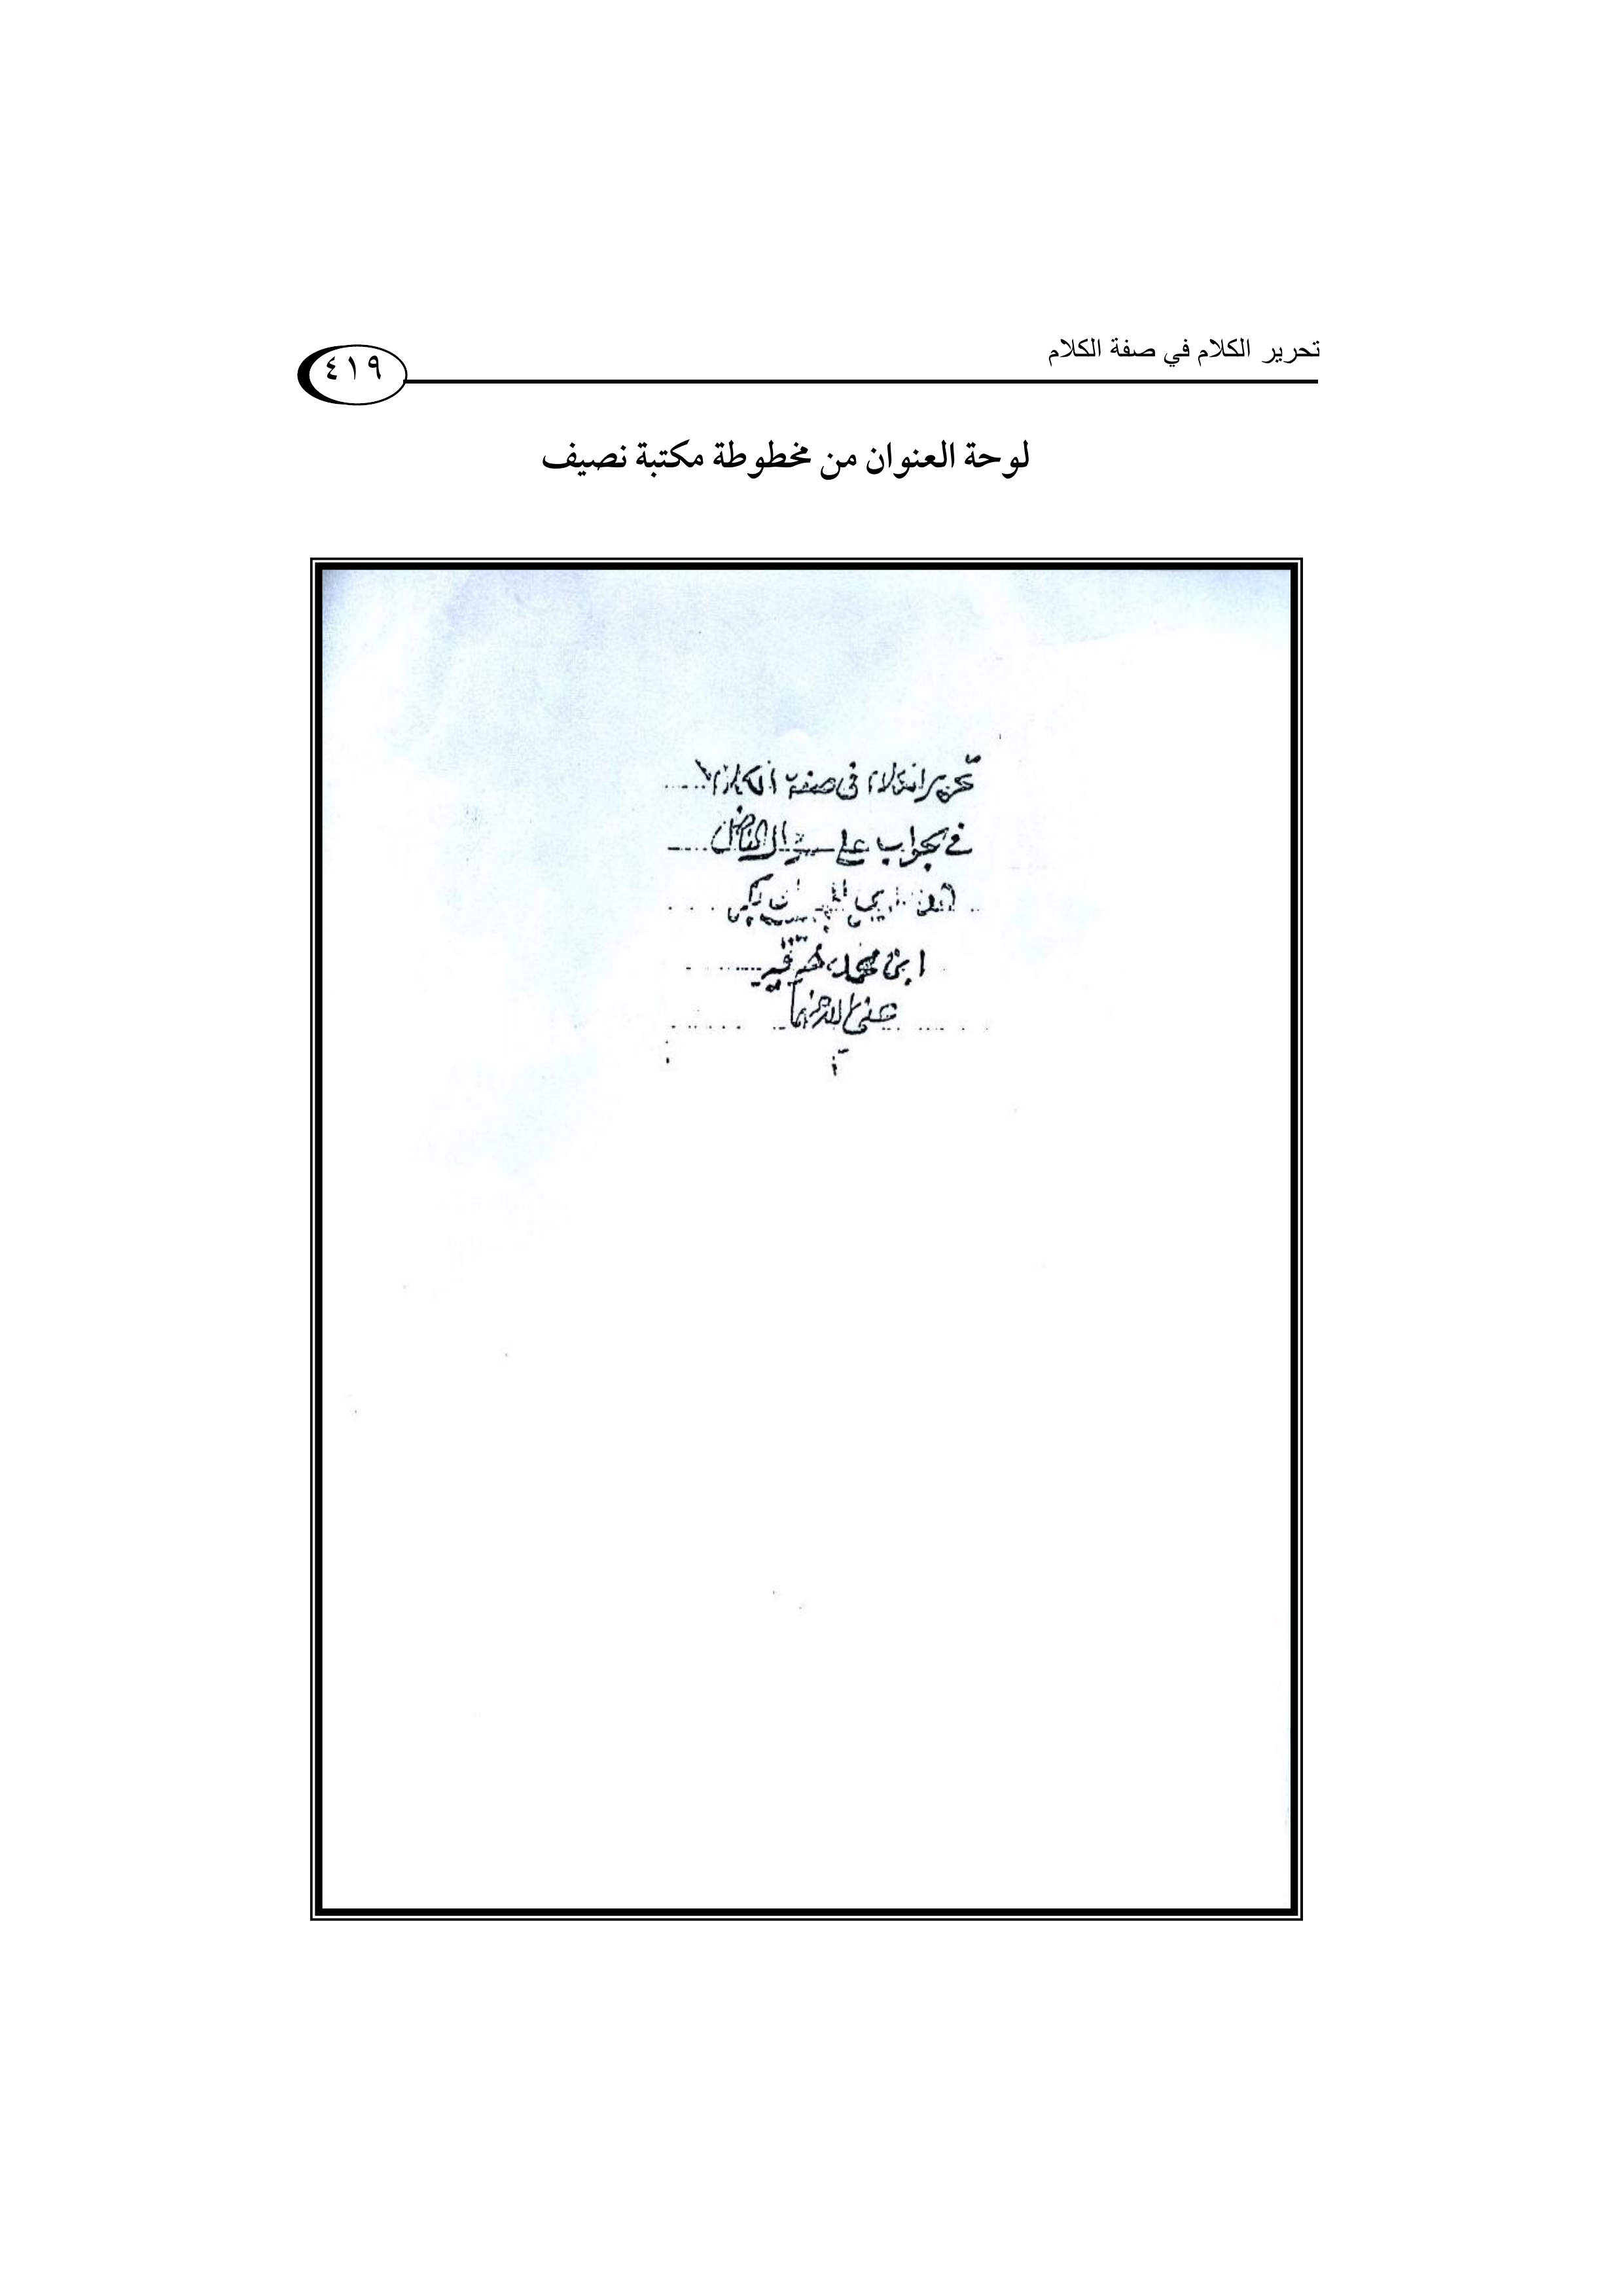 تحرير الكلام في صفة الكلام
٤١٩
لوحة العنوان من مخطوطة مكتبة نصيف
تحرير الكلام في صفة الكلام
في جواب على سؤال الفاضل
ابن محمد خوقير
عفى الله عنهما